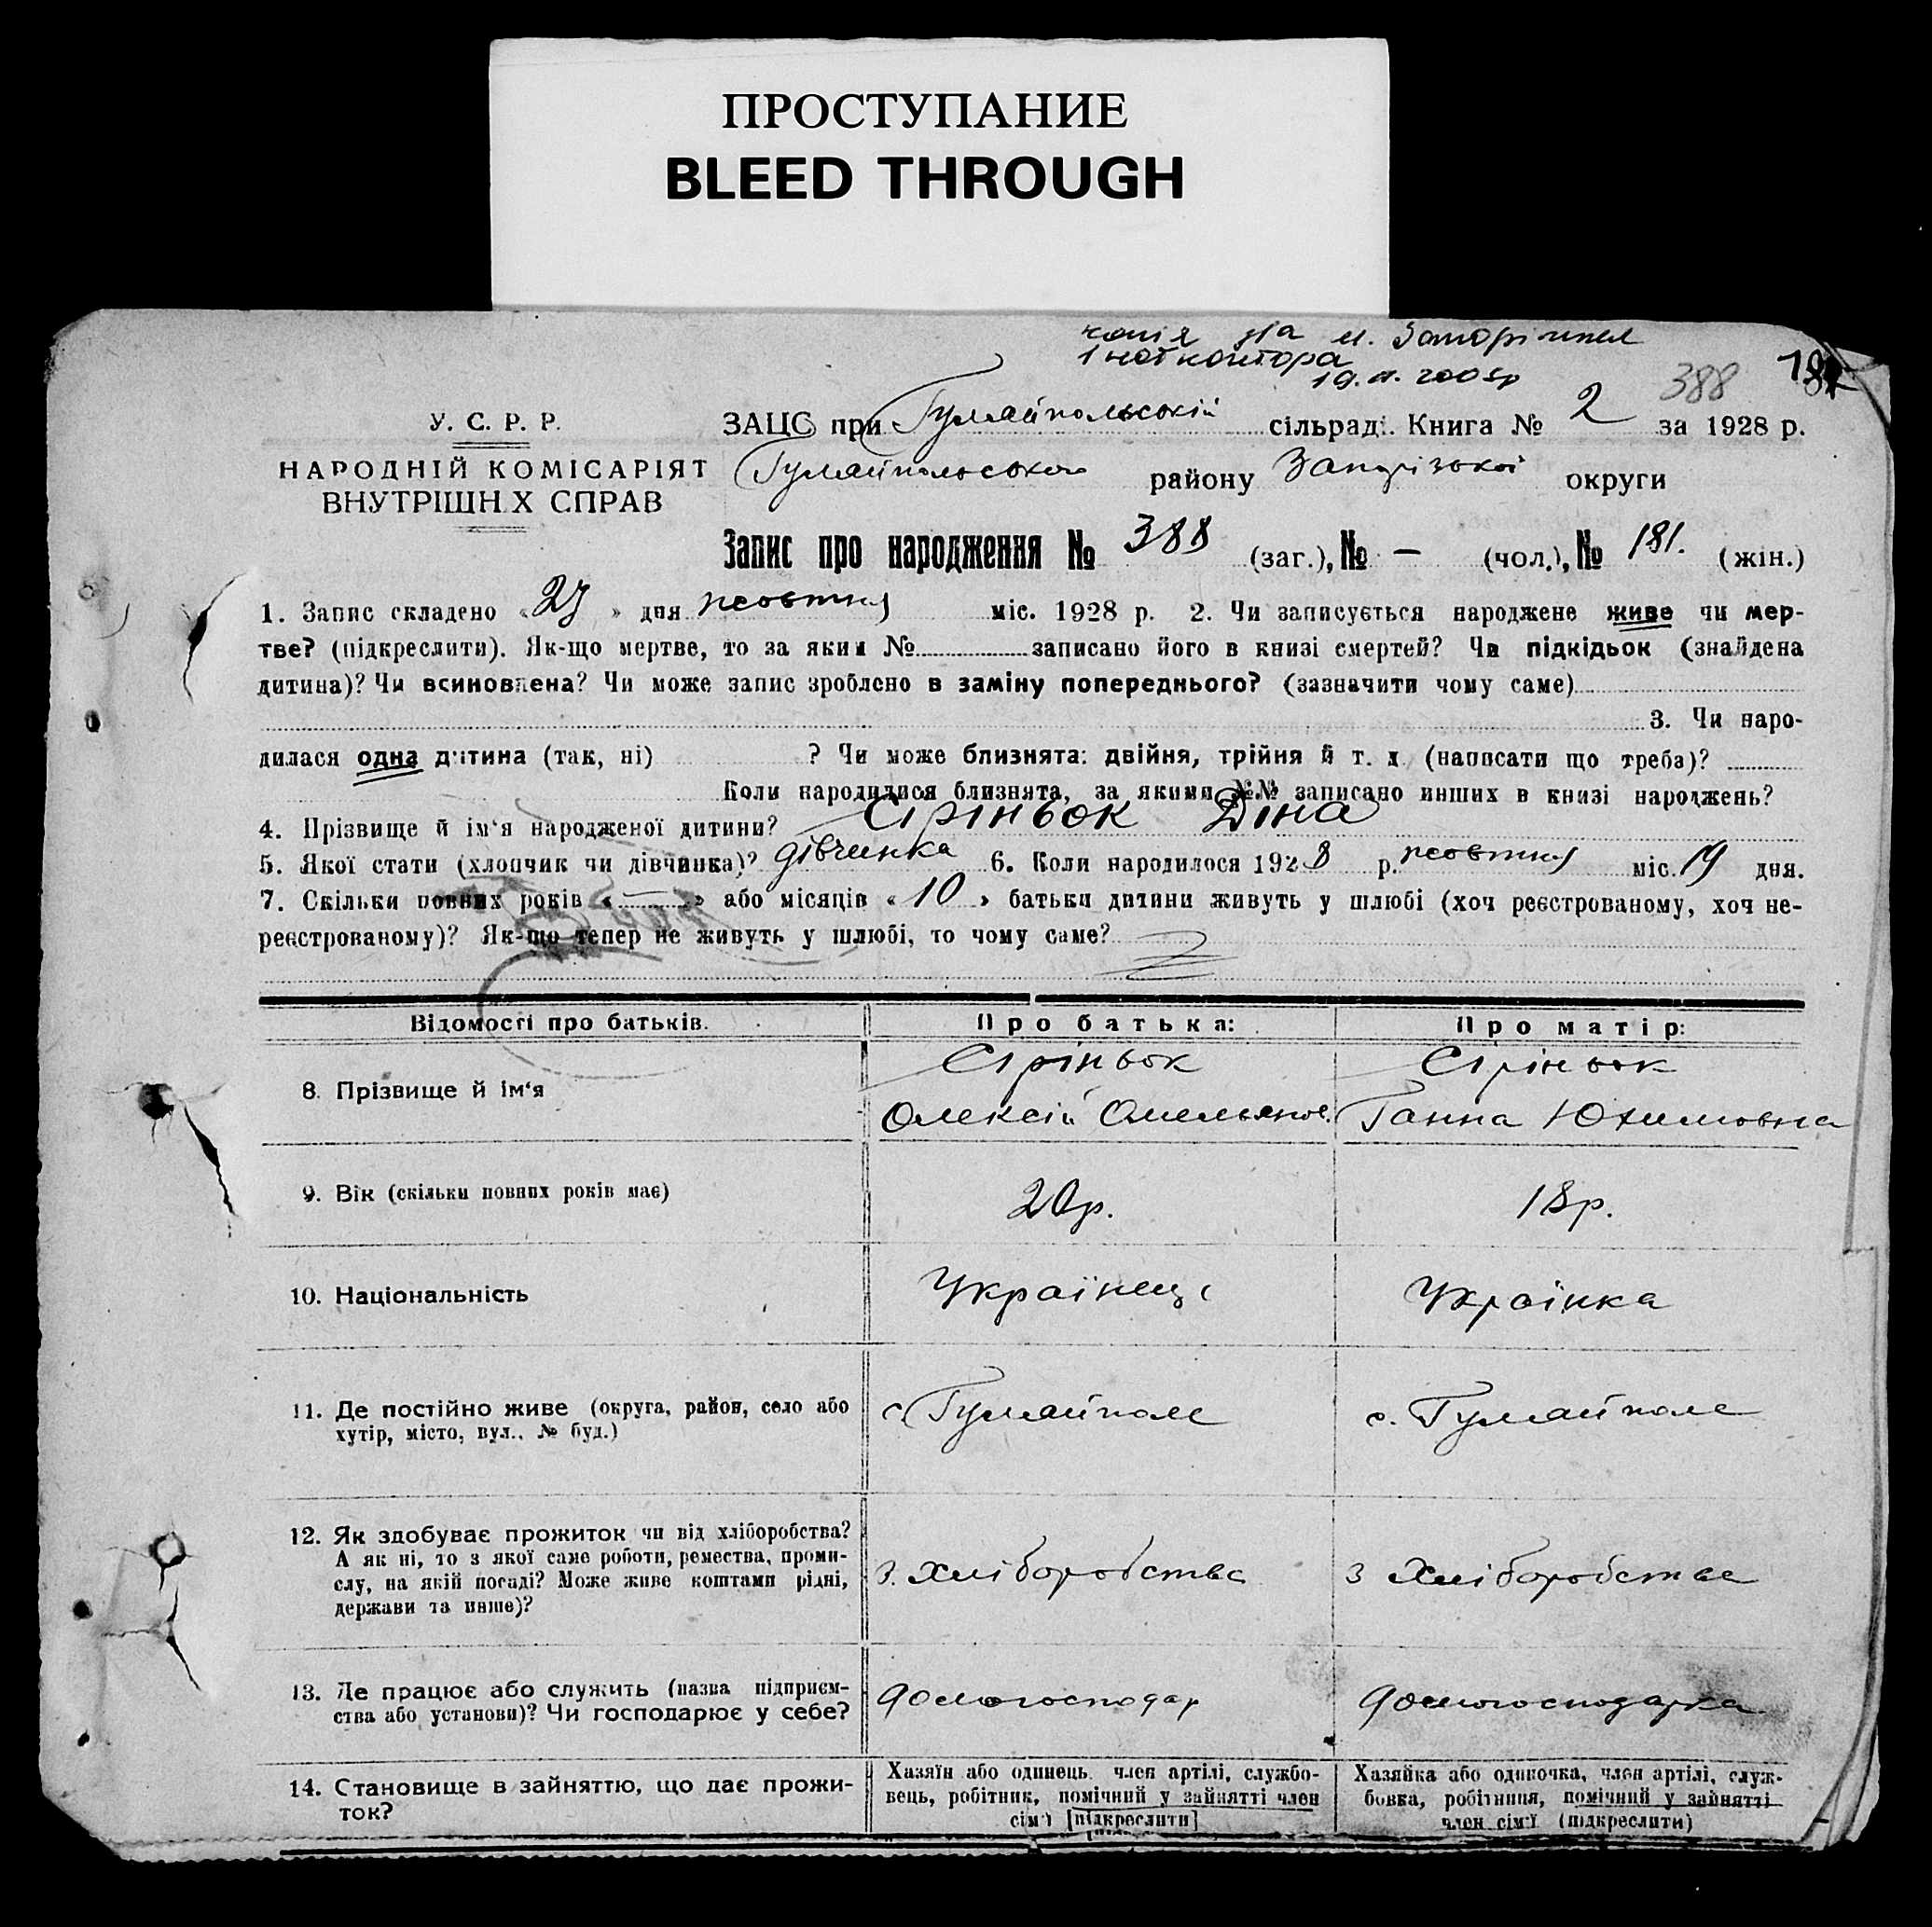 ПРОСТУПАНИЕ
BLEED THROUGH
копія на м. Запоріжжя
1 нотконтора
388
У. С. Р. Р.
НАРОДНІЙ КОМІСАРІЯТ
ВНУТРІШН.Х СПРАВ
ЗАЦС при Гуляйпольській сільраді. Книга № 2 за 1928 р.
Гуляйпольського району Запорізької округи
Запис про народження № 388 (заг.), № — (чол.), № 181. (жін.)
1. Запис складено « 27 » дня жовтня міс. 1928 р. 2. Чи записується народжене живе чи мер-
тве? (підкреслити). Як-що мертве, то за яким № записано його в книзі смертей? Чи підкідьок (знайдена
дитина)? Чи всиновлена? Чи може запис зроблено в заміну попереднього? (зазначити чому саме)
3. Чи наро-
дилася одна дитина (так, ні) ? Чи може близнята: двійня, трійня й т. д. (написати що треба)?
Коли народилися близнята, за якими №№ записано инших в книзі народжень?
4. Прізвище й ім'я народженої дитини? Сіріньок Діна
5. Якої стати (хлопчик чи дівчинка)? дівчинка 6. Коли народилося 1928 р. жовтня міс. 19 дня.
7. Скільки повних років « — » або місяців « 10 » батьки дитини живуть у шлюбі (хоч реєстрованому, хоч не-
реєстрованому)? Як-що тепер не живуть у шлюбі, то чому саме?
Відомості про батьків. Про батька: Про матір:
8. Прізвище й ім'я Сіріньок Сіріньок
Олексій Омельянов. Ганна Юхимовна
9. Вік (скільки повних років має) 20р. 18р.
10. Національність Українець Українка
11. Де постійно живе (округа, район, село або
хутір, місто, вул., № буд.) с. Гуляйполе с. Гуляйполе
12. Як здобуває прожиток чи від хліборобства?
А як ні, то з якої саме роботи, ремества, проми-
слу, на якій посаді? Може живе коштами рідні,
держави та инше)? З. Хліборобства З Хліборобства
13. Де працює або служить (назва підприєм-
ства або установи)? Чи господарює у себе? домогосподар домогосподарка
14. Становище в зайняттю, що дає прожи-
ток?
Хазяїн або одинець, член артілі, службо-
вець, робітник, помічний у зайнятті член
сім'ї [підкреслити]
Хазяйка або одиночка, член артілі, служ-
бовка, робітниця, помічний у зайнятті
член сім'ї (підкреслити)